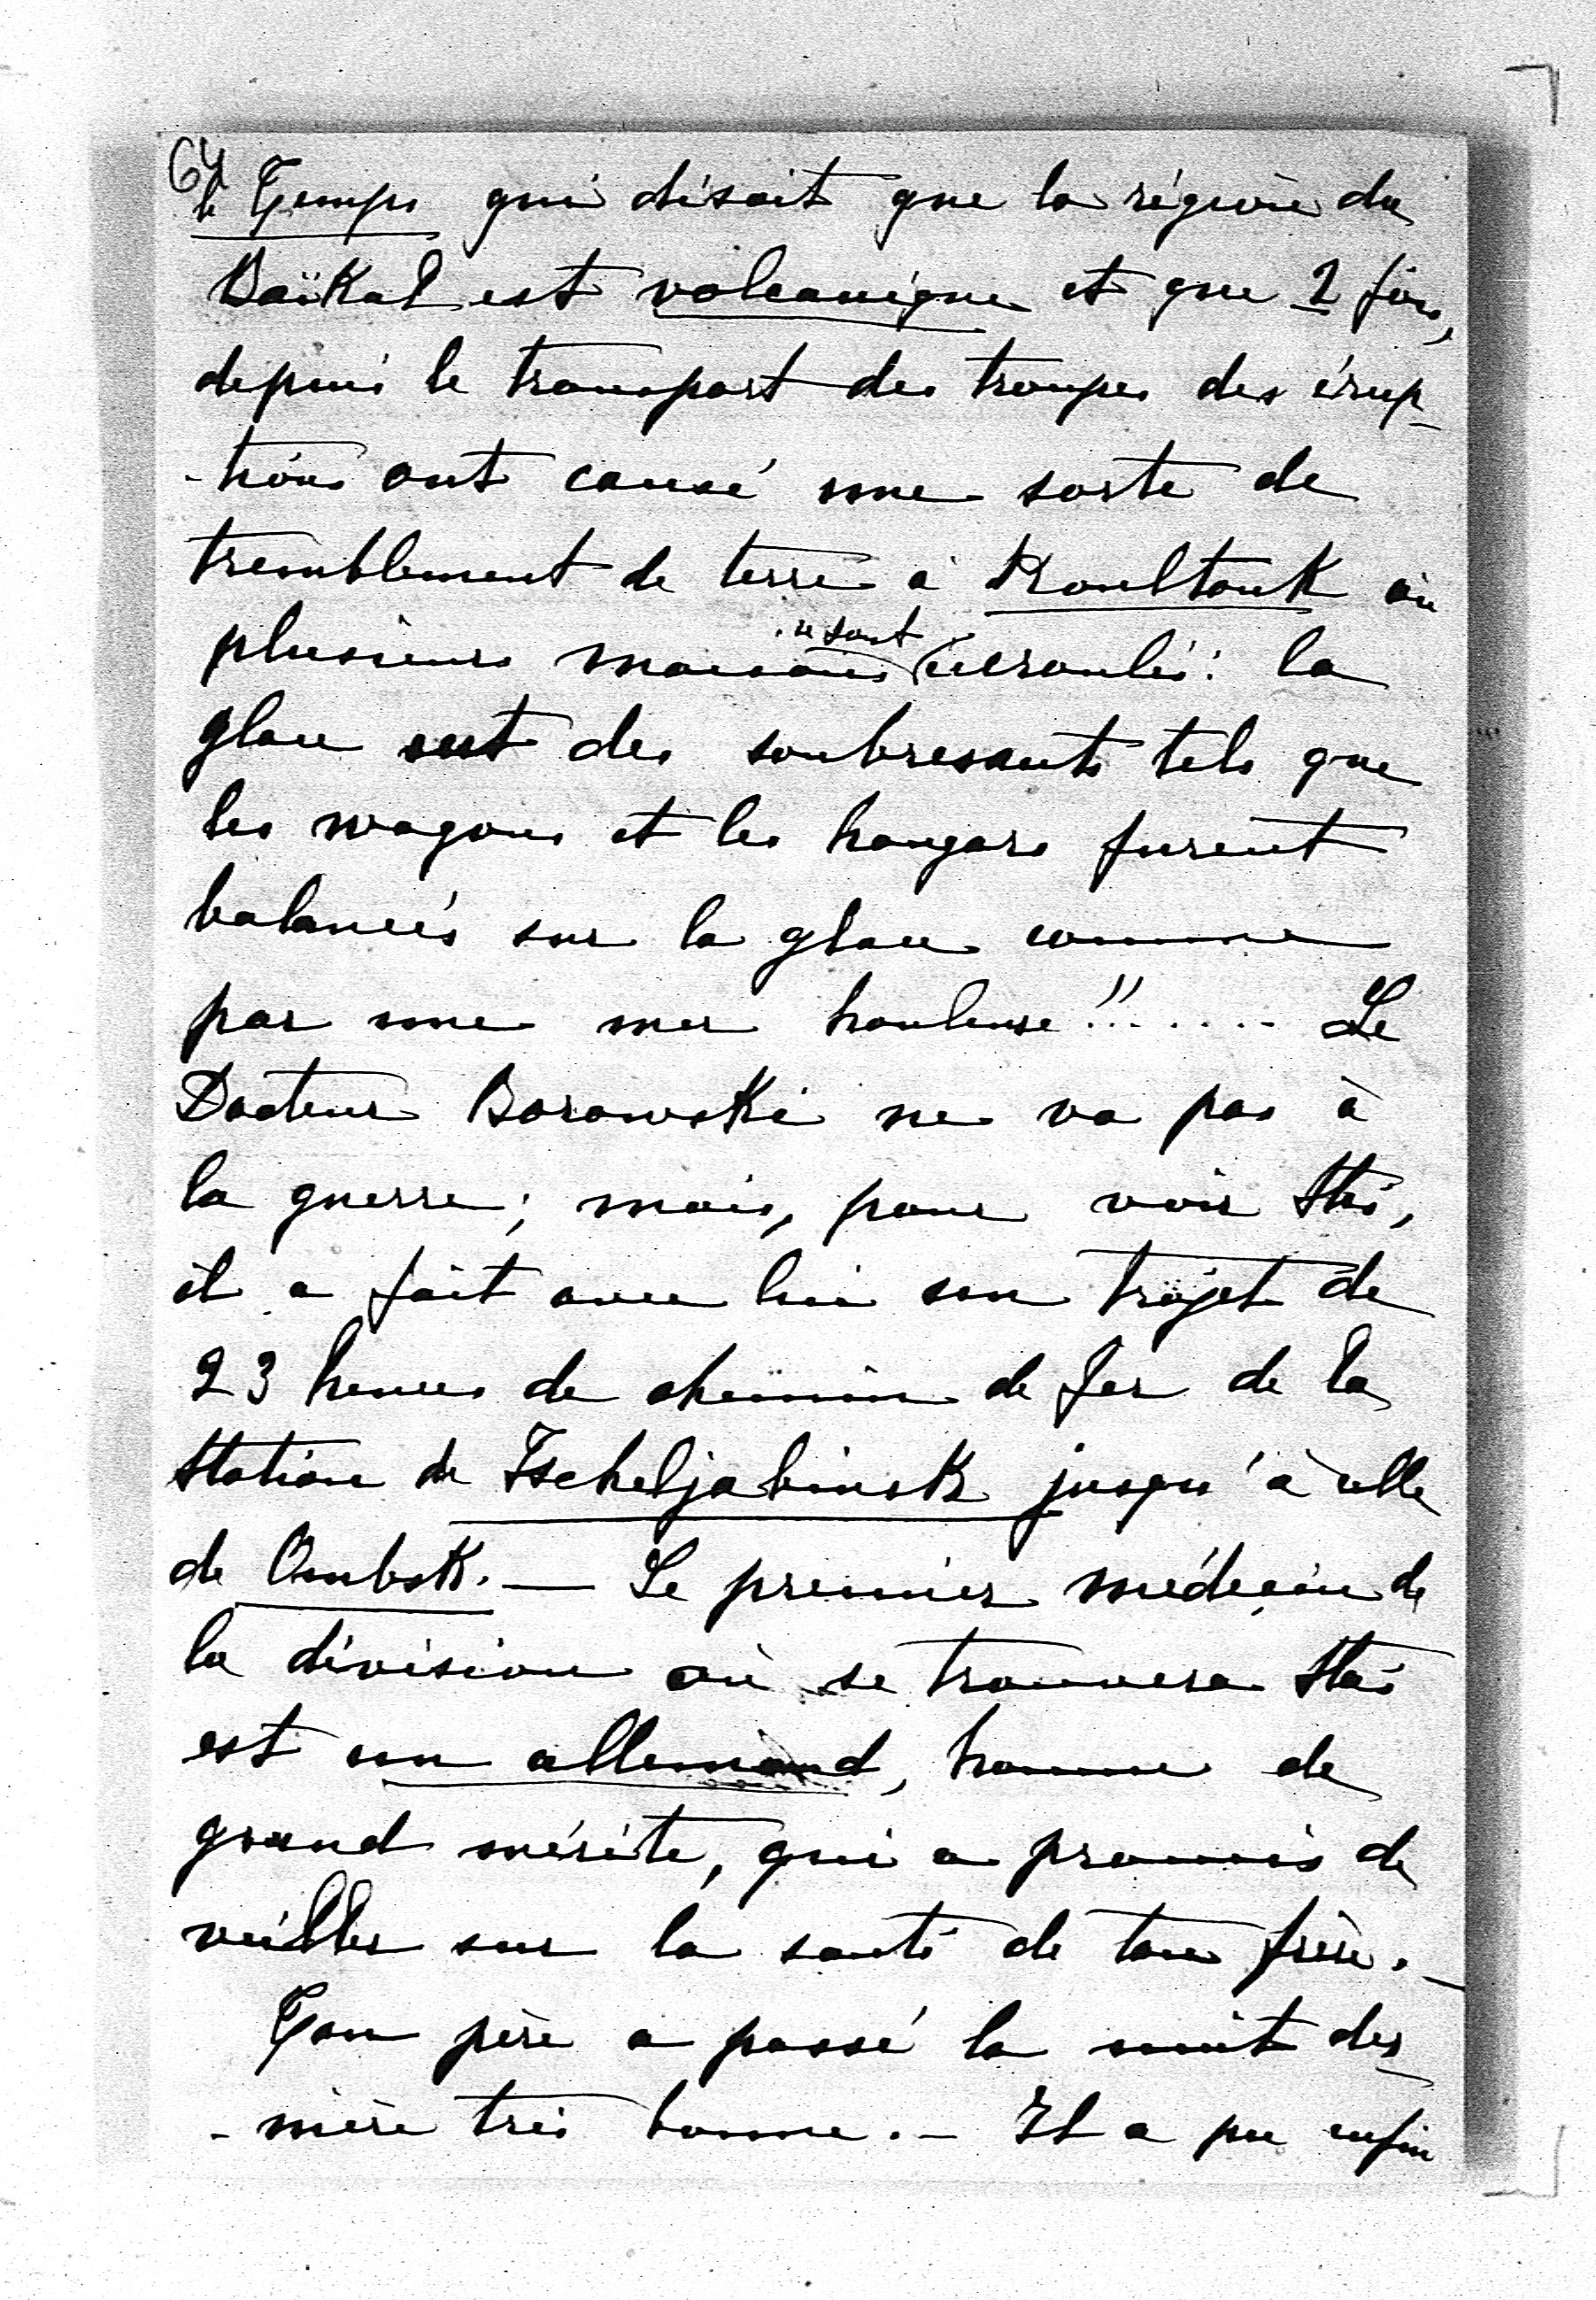 64
le Temps qui disait que la région du
Baïkal est volcanique et que 2 fois,
depuis le transport des troupes des érup-
-tions ont causé une sorte de
tremblement de terre à Koultouk où
plusieurs maisons se sont écroulés : la
glace eut des soubresauts tels que
les wagons et les hangars furent
balancés sur la glace comme
par une mer houleuse !!....... Le
Docteur Borowski ne va pas à
la guerre ; mais, pour voir Stas,
il a fait avec lui un trajet de
23 heures de chemin de fer de la
Station de Tscheljabinsk jusqu'à celle
de Ombsk. — Le premier médecin de
la division où se trouvera Stas
est un allemand, homme de
grand mérite, qui a promis de
veiller sur la santé de ton frère. —
Ton père a passé la nuit der-
-nière très bonne. — Il a pu enfin